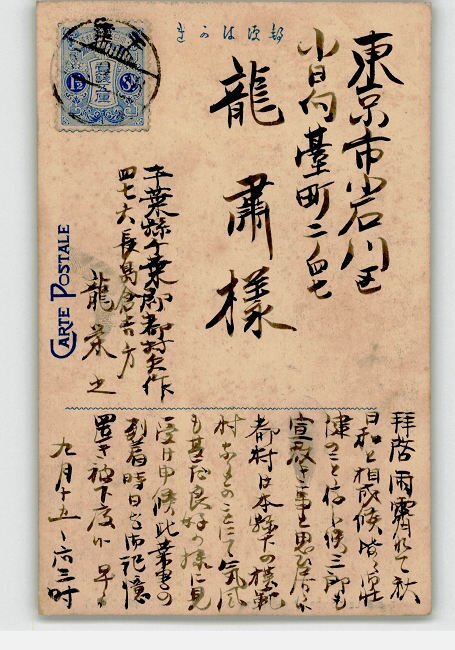 きかは便郵
東京市小石川区
小日向臺町二ノ四七
龍 肅 様
千葉縣千葉郡都村矢作
四七六長島倉吉方
龍 榮 之
CARTE POSTALE
1½
拝啓 雨霽れて秋
日和と相成候
候 三郎も
都村は本縣下の模範
村なりとのことにて気風
も甚だ良好の様に見
受け申候此葉書の
到着時日を御記憶
置き被下度候 早々
九月十五